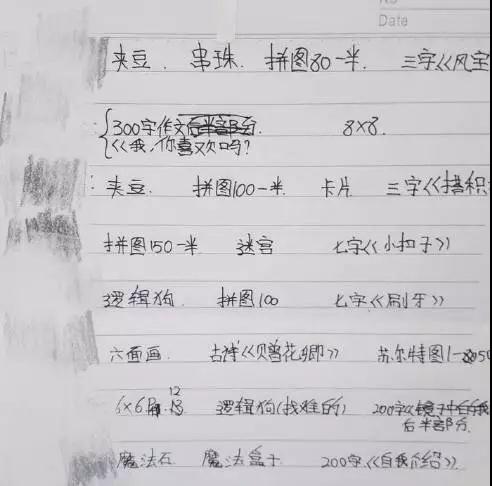 Date
夹豆. 串珠. 拼图80一半. 三字《风宝
300字作文后半部分. 8×8.
《我,你喜欢吗?
: 夹豆. 拼图100一半. 卡片 三字《搭积
拼图150一半 迷宫 七字《小扣子》
逻辑狗. 拼图100 七字《刷牙》
六面画. 古诗《赠花卿》 苏尔特图1-50
12
6×6 逻辑狗(找难的) 200字《镜子中的我
后半部分.
魔法石. 魔法盒子. 200字.《自我介绍》